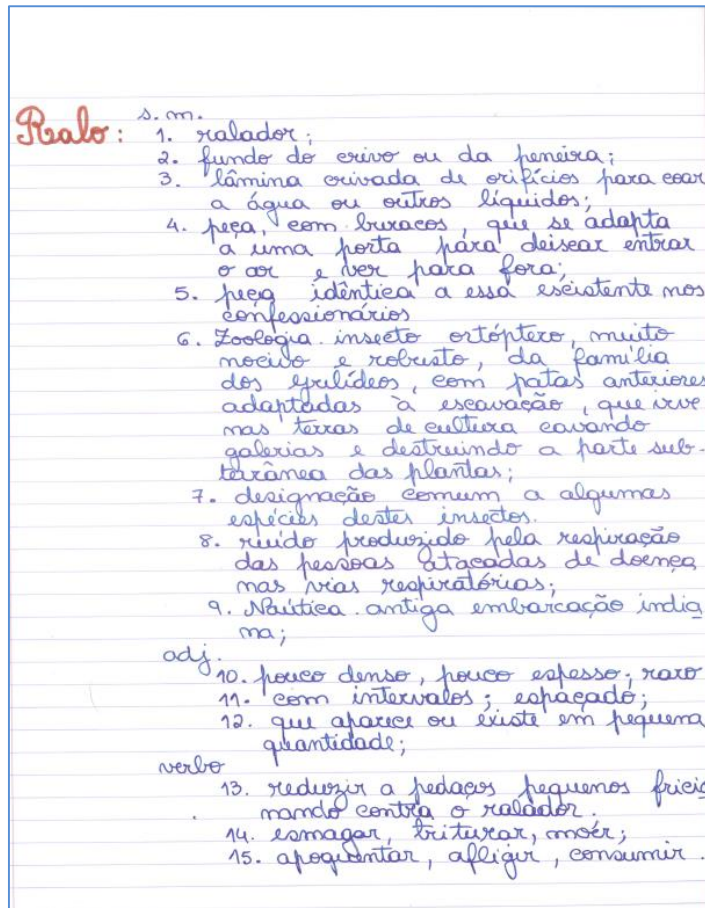 s. m.
Ralo: 1. ralador;
2. fundo do crivo ou da peneira;
3. lâmina crivada de orifícios para coar
a água ou outros líquidos;
4. peça, com buracos, que se adapta
a uma porta para deixar entrar
o ar e ver para fora;
5. peça idêntica a essa existente nos
confessionários
6. Zoologia. insecto ortóptero, muito
nocivo e robusto, da família
dos grilídeos, com patas anteriores
adaptadas à escavação, que vive
nas terras de cultura cavando
galerias e destruindo a parte sub-
terrânea das plantas;
7. designação comum a algumas
espécies destes insectos.
8. ruído produzido pela respiração
das pessoas atacadas de doença
nas vias respiratórias;
9. Naútica. antiga embarcação india
na;
adj.
10. pouco denso, pouco espesso; raro
11. com intervalos; espaçado;
12. que aparece ou existe em pequena
quantidade;
verbo
13. reduzir a pedaços pequenos fricio
nando contra o ralador.
14. esmagar, triturar, moer;
15. apoquentar, afligir, consumir.